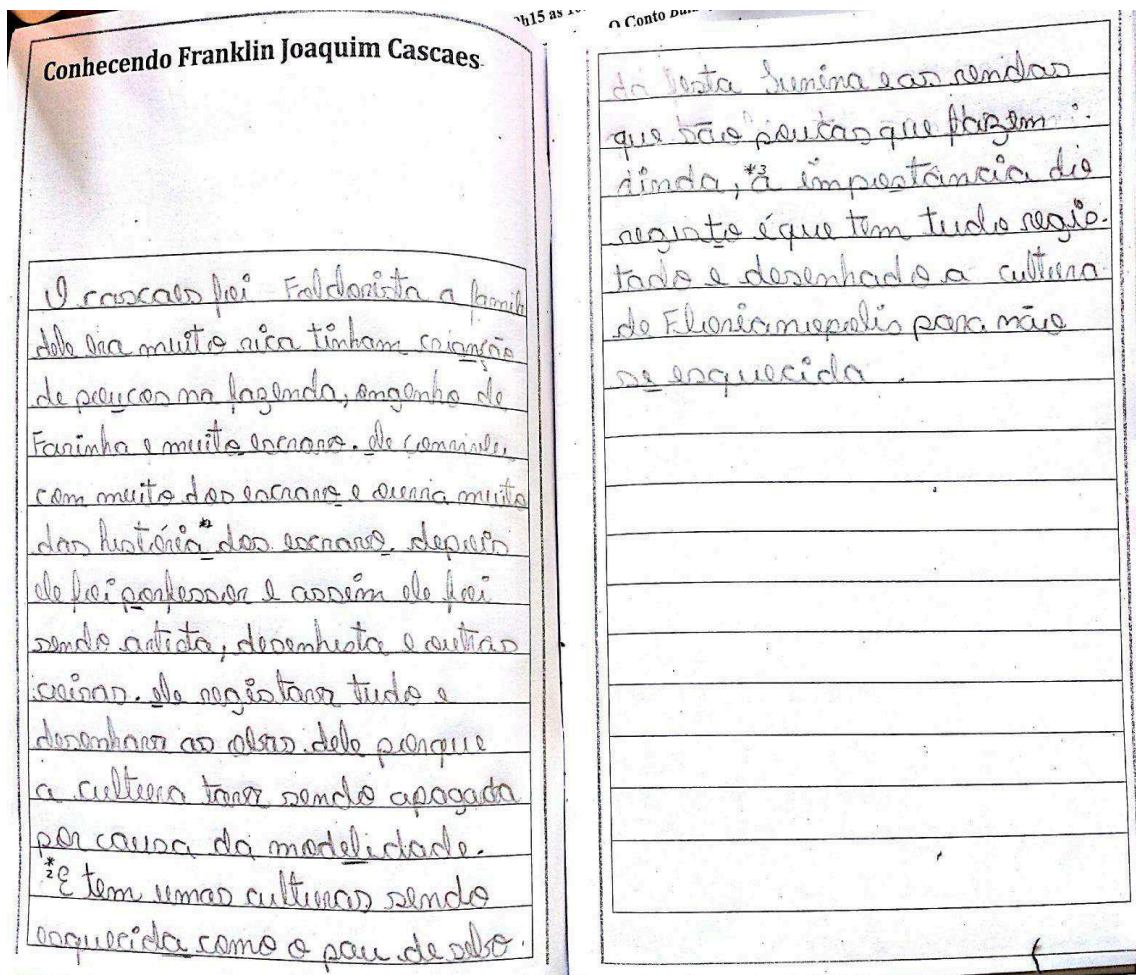 Conhecendo Franklin Joaquim Cascaes
O cascaes foi Folclorista a famili
dele era muito rica tinham crianção
de poucos na fazenda, engenho de
Farinha e muito escravo. ele convive,
com muito dos escravo e ouvia muito
das história *1 dos escravo. depois
ele foi porfessor e assim ele foi
sendo artista, desenhista e outras
coisas. ele registava tudo e
desenhava as obras dele porque
a cultura tava sendo apagada
por causa da modelidade.
*2 E tem umas culturas sendo
esquecida como o pau de sebo.
h15 as
O Conto
da festa Junina e as rendas
que são poucas que fazem
ainda, *3 a importância dio
registo é que tem tudo regis-
tado e desenhado a cultura
de Florianiopolis para não
se esquecida.